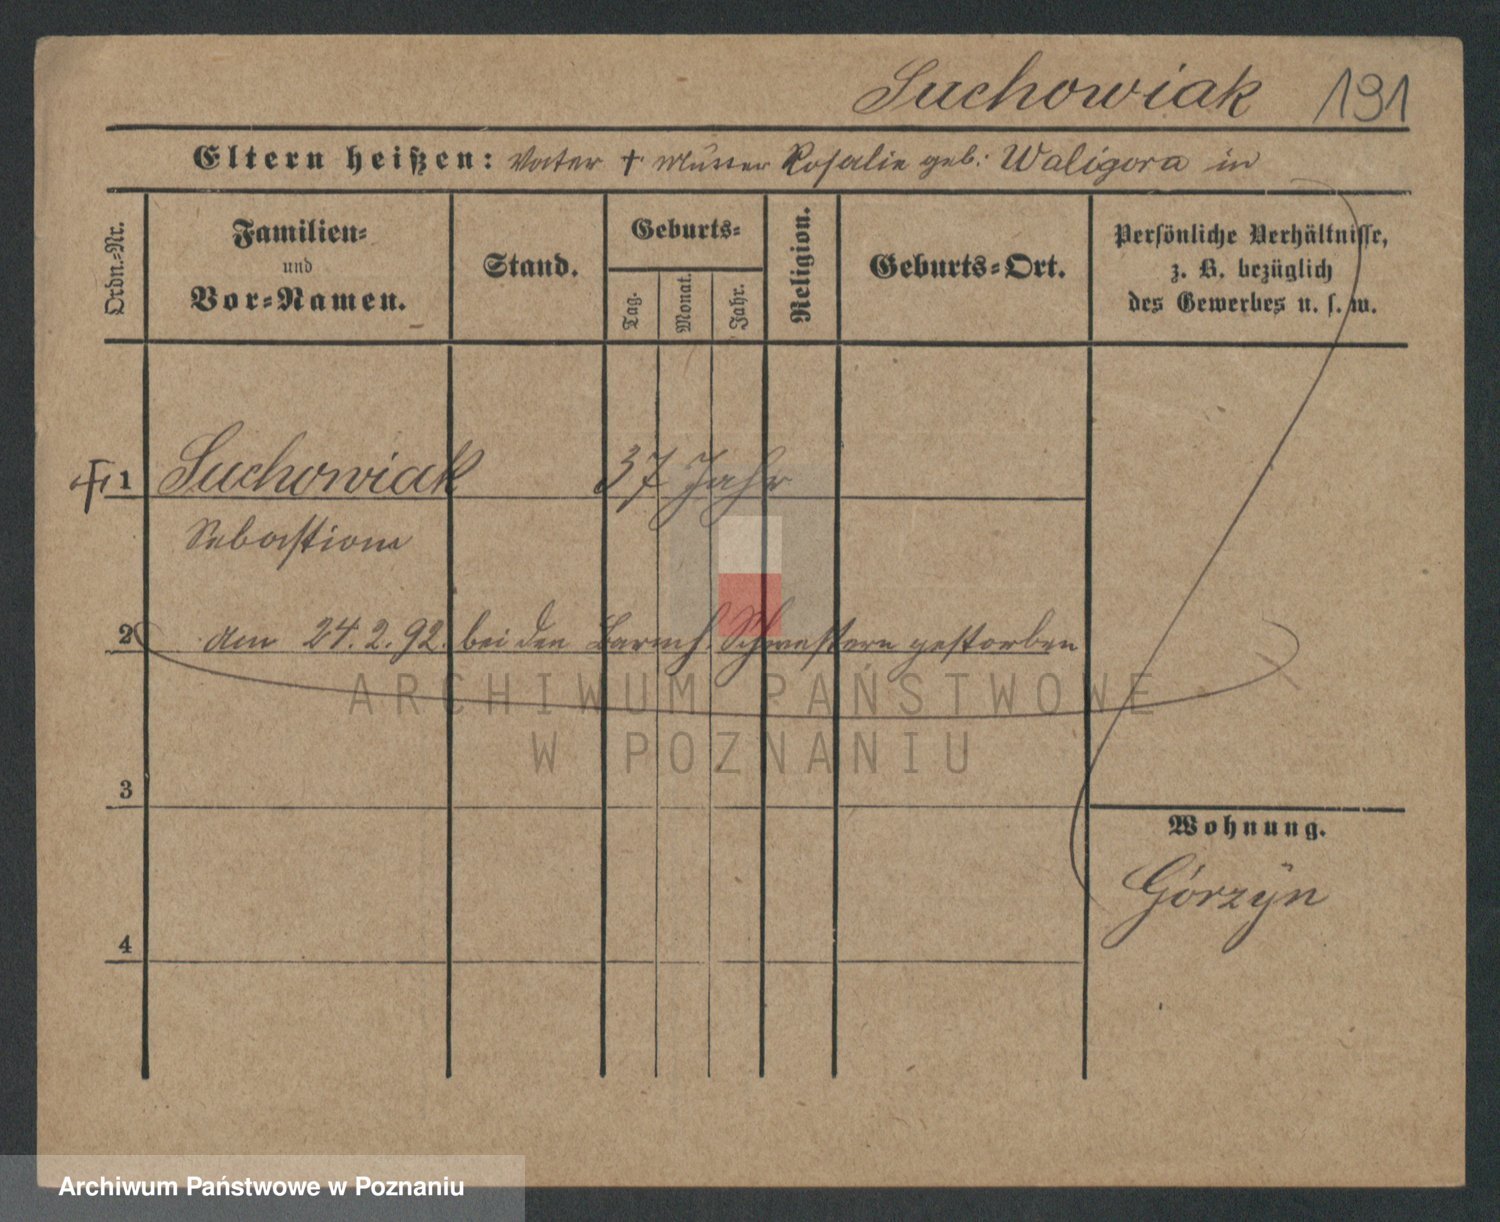 Suchowiak 191
Eltern heißen: Vater † Mutter Rosalie geb. Waligora in
Ordn.-Nr.
Familien-
und
Vor-Namen.
Stand.
Geburts-
Tag.
Monat.
Jahr.
Religion.
Geburts-Ort.
Persönliche Verhältnisse,
z. B. bezüglich
des Gewerbes u. s. w.
1 Suchowiak 37 Jahr
Sebastian
2 am 24.2.92. bei den Barmh. Schwestern gestorben
ARCHIWUM PAŃSTWOWE
W POZNANIU
3
Wohnung.
Górzyn
4
Archiwum Państwowe w Poznaniu